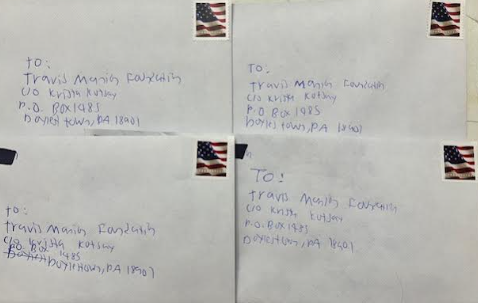 TO:
Travis Manion Foundation
c/o Krista Kotsay
P.O. Box 1485
Doylestown, PA 18901
TO:
Travis Manion Foundation
c/o Krista Kotsay
P.O. Box 1485
Doylestown, PA 18901
TO:
Travis Manion Foundation
c/o Krista Kotsay
P.O. Box
1485
Doylestown, PA 18901
TO:
Travis Manion Foundation
c/o Krista Kotsay
P.O. Box 1485
Doylestown, PA 18901